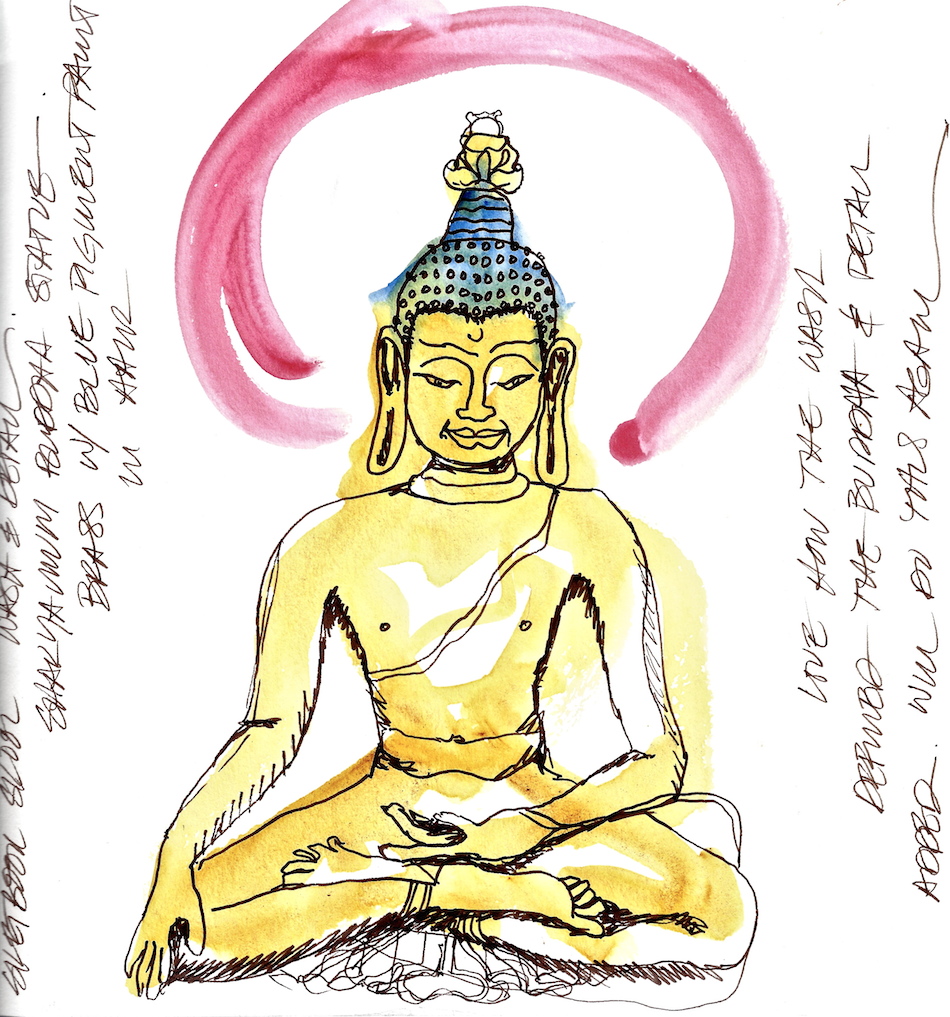 WASH & DETAIL.
SHAKYAMUNI BUDDHA STATUE
BRASS W/ BLUE PIGMENT PAINT
IN HAIR
LOVE HOW THE WASH
DEFINED THE BUDDHA & DETAIL
ADDED. WILL DO THIS AGAIN